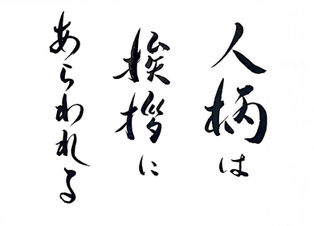 人柄は
挨拶に
あらわれる